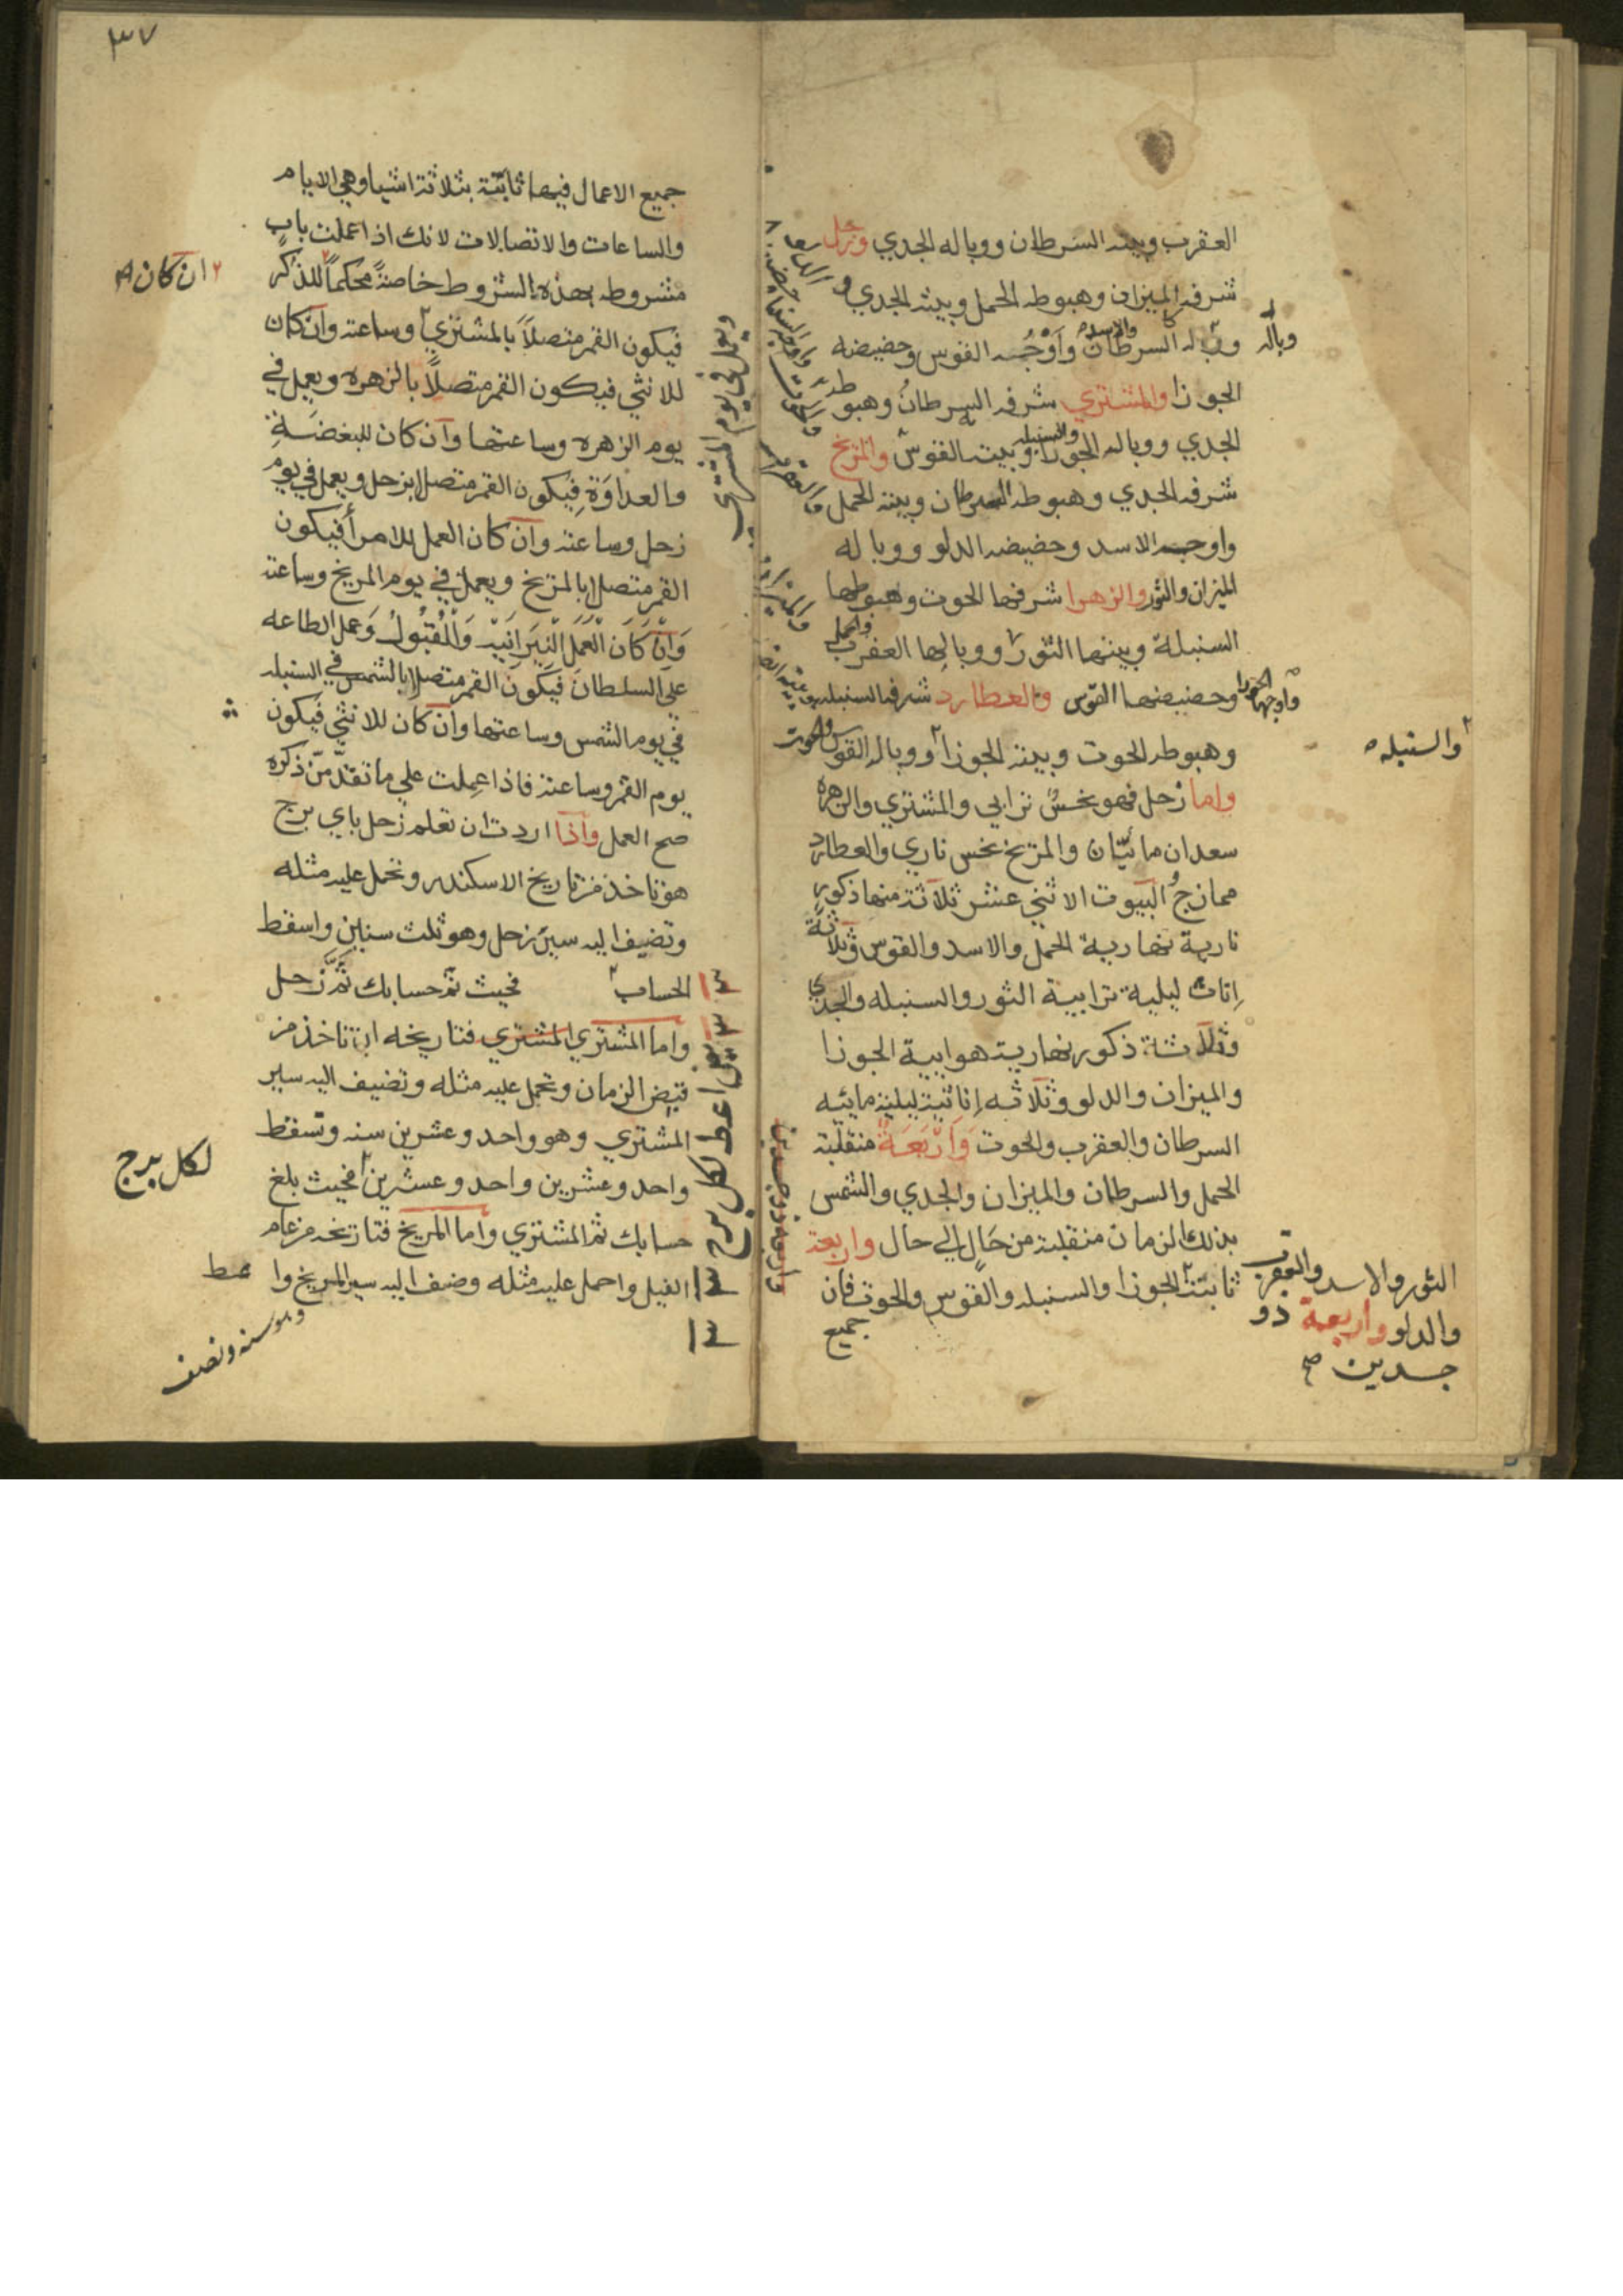 العقرب وبيته السرطان ووباله الجدي وزحل
شرفه الميزان وهبوطه الحمل وبيته الجدي و
وباله السرطان والاسد وأوجه القوس وحضيضه
وباله
الجوزا والمشتري شرفه السرطان وهبوطه
الجدي ووباله الجوزا والسنبله وبيته القوس والمريخ
شرفه الجدي وهبوطه السرطان وبيته الحمل
واوجه الاسد وحضيضه الدلو ووباله
الميزان والثور والزهرا شرفها الحوت وهبوطها
السنبلة وبيتها الثور ووبالها العقرب والحمل
واوجها الجوزا وحضيضها القوس والعطارد شرفه السنبله
وهبوطه الحوت وبيته الجوزا ووباله القوس والحوت
والسنبله
واما زحل فهو نحس ترابي والمشتري والزهره
سعدان مائيان والمريخ نحس ناري والعطارد
ممازج البيوت الاثني عشر ثلاثة منها ذكور
نارية نهارية الحمل والاسد والقوس وثلاثة
اناث ليلية ترابية الثور والسنبله والجدي
وثلاثة ذكور نهارية هوايية الجوزا
والميزان والدلو وثلاثه اناثية ليلية مائيه
السرطان والعقرب والحوت وأربعة منقلبة
الحمل والسرطان والميزان والجدي والشمس
بذلك الزمان منقلبة من حال الي حال واربعة
ثابتة الجوزا والسنبله والقوس والحوت فان
جميع
الثور والاسد والعقرب
والدلو واربعة ذو
جسدين صح
٣٧
جميع الاعمال فيها ثابتة بثلاثة اشيا وهي الايام
والساعات والاتصالات لانك اذا عملت باب
مشروطه بهذه الشروط خاصة محكماً للذكر
ان كان
فيكون القمر متصلاً بالمشتري وساعته وان كان
ويعمل في يوم المشتري
للانثي فيكون القمر متصلاً بالزهره ويعمل في
يوم الزهره وساعتها وان كان للبغضة
والعداوة فيكون القمر متصلا بزحل ويعمل في يوم
زحل وساعته وان كان العمل للامرأ فيكون
القمر متصلا بالمريخ ويعمل في يوم المريخ وساعته
وان كان العمل النيرانيه والقبول وعمل الطاعه
علي السلطان فيكون القمر متصلا بالشمس في السنبله
في يوم الشمس وساعتها وان كان للانثي فيكون
يوم القمر وساعته فاذا عملت علي ما تقدم ذكره
صح العمل واذا اردت ان تعلم زحل باي برج
هو تاخذ من تاريخ الاسكندر وتحمل عليه مثله
وتضيف اليه سير زحل وهو ثلث سنين واسقط
الحساب فحيث تم حسابك ثم زحل
واما المشتري المشتري فتاريخه ان تاخذ من
قبض الزمان وتحمل عليه مثله وتضيف اليه سير
المشتري وهو واحد وعشرين سنه وتسقط
واحد وعشرين واحد وعشرين فحيث بلغ
لكل برج
حسابك ثم المشتري واما المريخ فتاريخه من عام
الفيل واحمل عليه مثله وضف اليه سير المريخ وا
وهو سنه ونصف